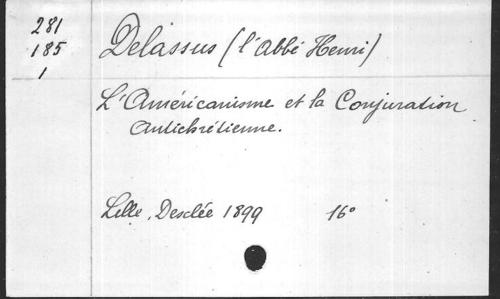 281
185
1
Delassus (l'Abbé Henri)
L'Américanisme et la Conjuration
Antichrétienne.
Lille, Desclée 1899 16°